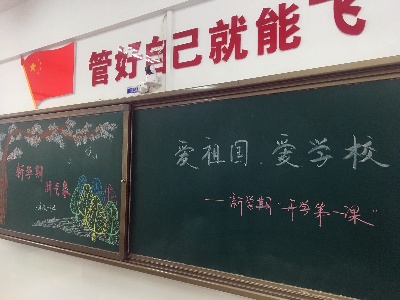 管好自己就能飞
爱祖国、爱学校
——新学期“开学第一课”
新学期